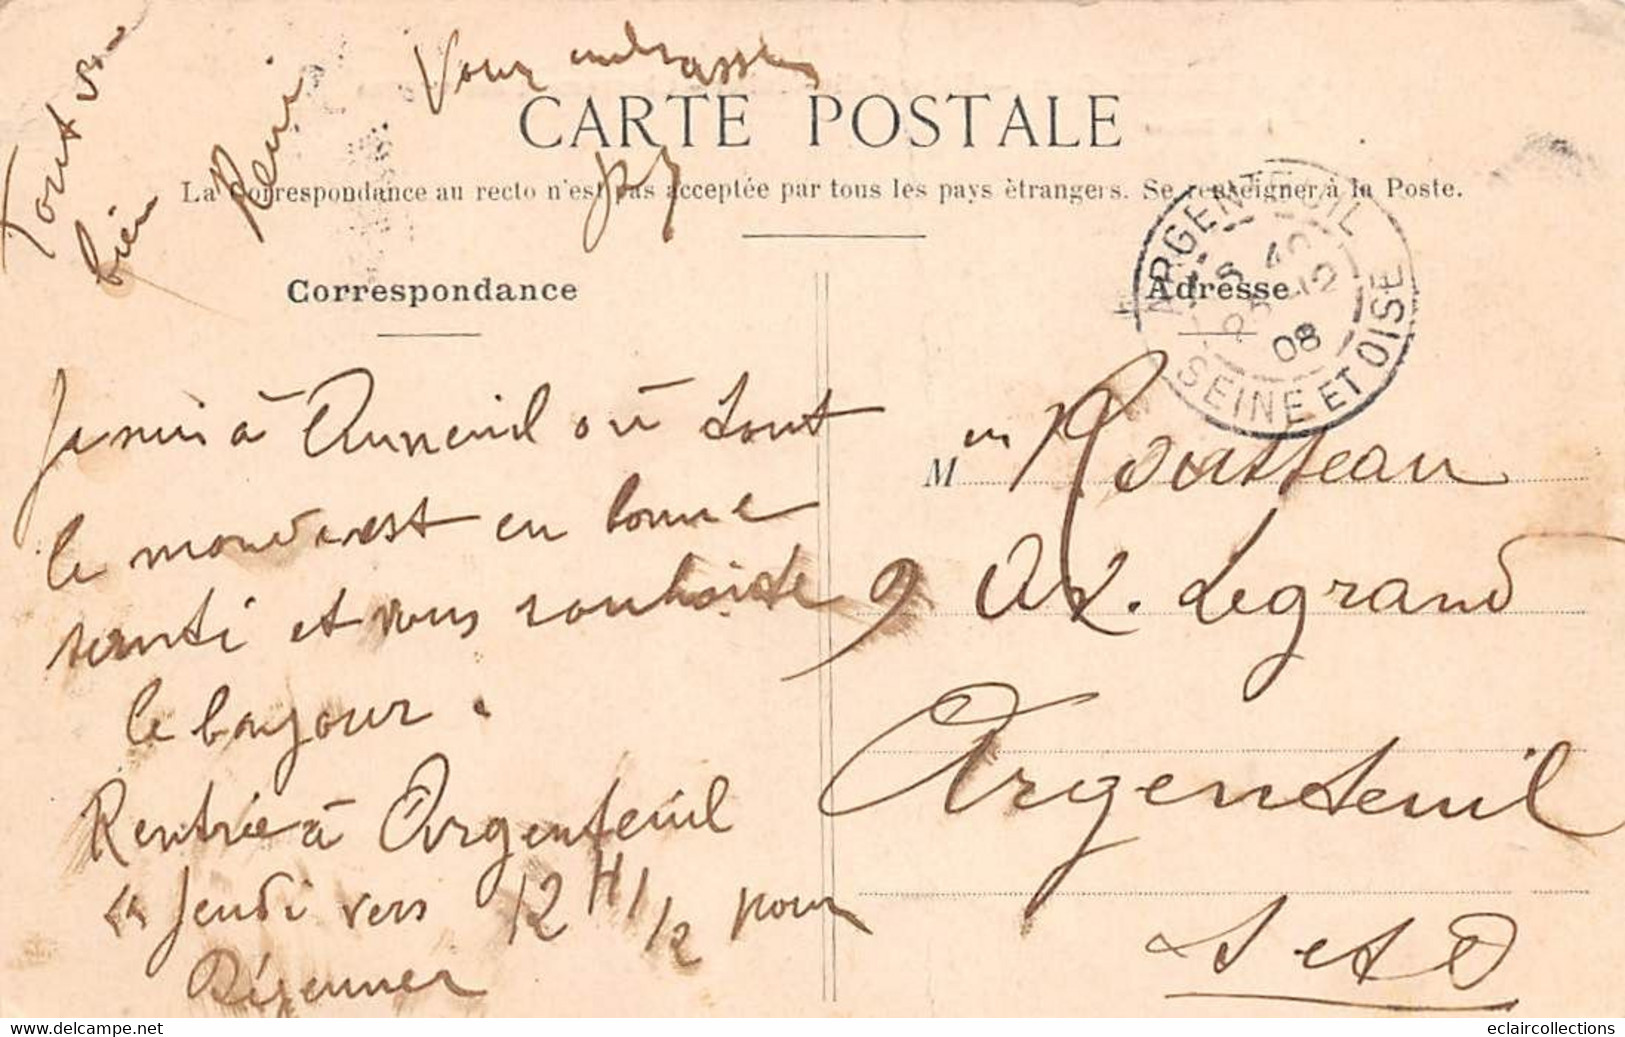 Vous embrasse
Tout va
bien
René
CARTE POSTALE
La Correspondance au recto n'est pas acceptée par tous les pays étrangers. Se renseigner à la Poste.
Correspondance
Adresse
ARGENTEUIL
12
08
SEINE ET OISE
Je suis à Auneuil où tout
le monde est en bonne
santé et vous souhaite
le bonjour.
Rentrée à Argenteuil
Jeudi vers 12 H 1/2 pour
Déjeuner
M Rousseau
9 Legrand
Argenteuil
S et O
eclaircollections
www.delcampe.net